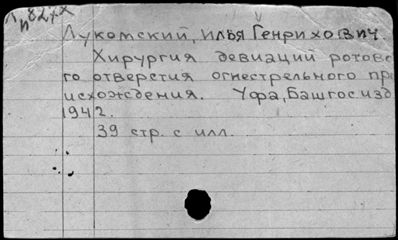 Лукомский, Илья Генрихович.
Хирургия девиаций ротово
го отверстия огнестрельного пр
исхождения. Уфа, Башгосизд
1942.
39 стр. с илл.